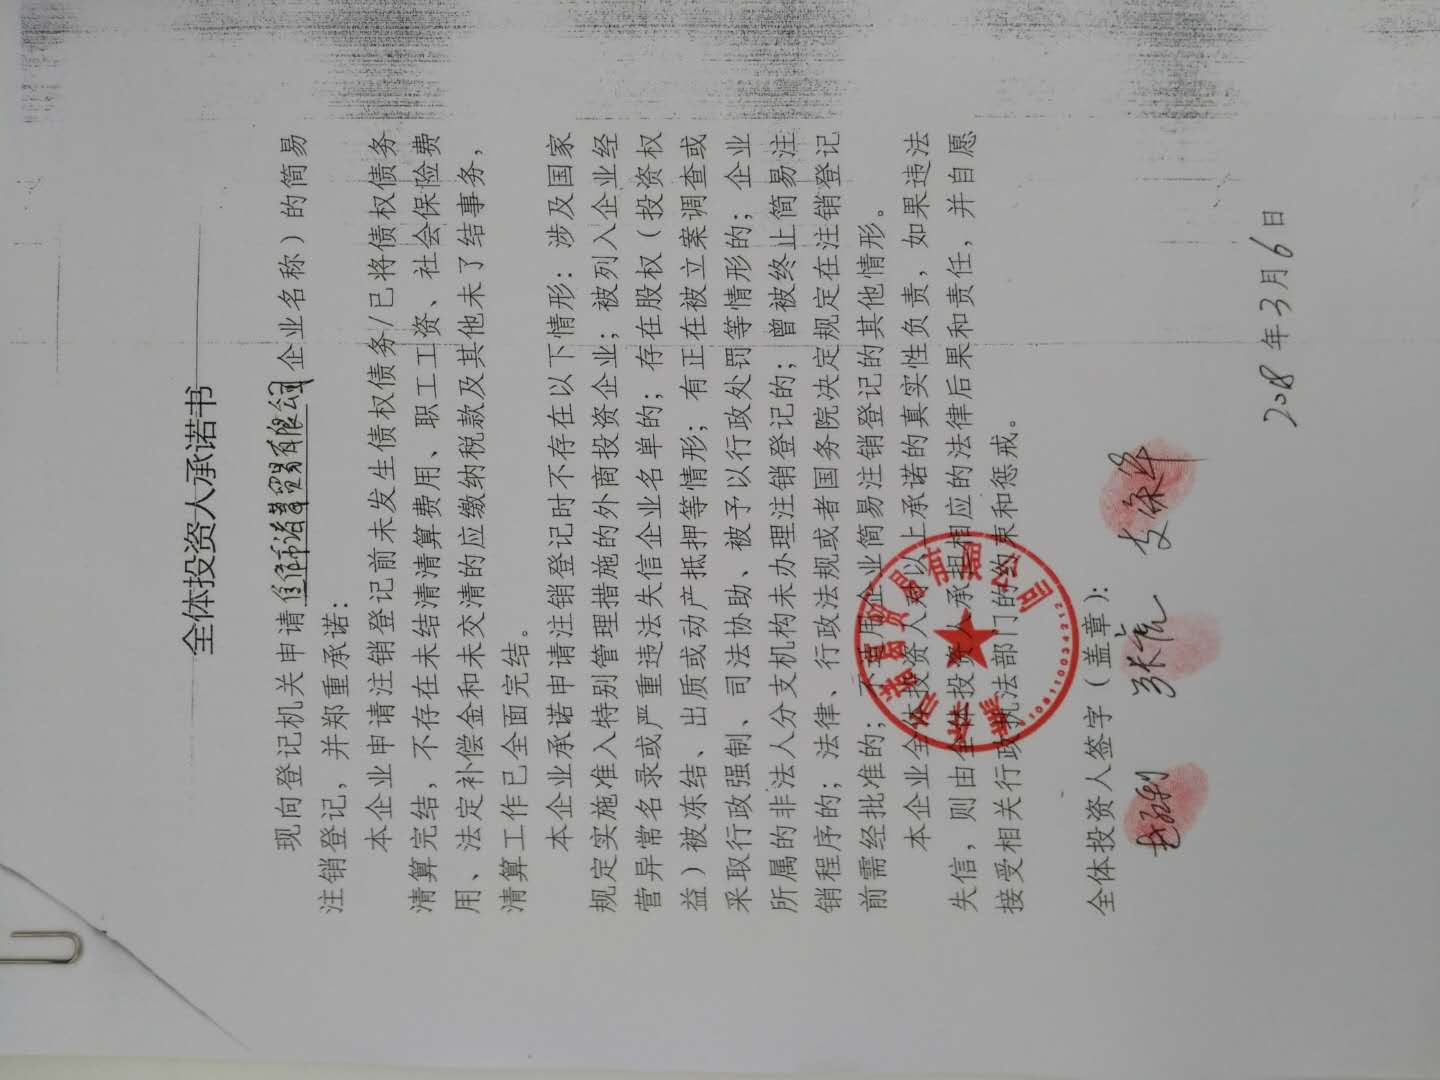 全体投资人承诺书
现向登记机关申请 贸易有限公司 企业名称）的简易
注销登记，并郑重承诺：
本企业申请注销登记前未发生债权债务/已将债权债务
清算完结，不存在未结清清算费用、职工工资、社会保险费
用、法定补偿金和未交清的应缴纳税款及其他未了结事务，
清算工作已全面完结。
本企业承诺申请注销登记时不存在以下情形：涉及国家
规定实施准入特别管理措施的外商投资企业；被列入企业经
营异常名录或严重违法失信企业名单的；存在股权（投资权
益）被冻结、出质或动产抵押等情形；有正在被立案调查或
采取行政强制、司法协助、被予以行政处罚等情形的；企业
所属的非法人分支机构未办理注销登记的；曾被终止简易注
销程序的；法律、行政法规或者国务院决定规定在注销登记
前需经批准的；不适用企业简易注销登记的其他情形。
本企业全体投资人对以上承诺的真实性负责，如果违法
失信，则由全体投资人承担相应的法律后果和责任，并自愿
接受相关行政执法部门的约束和惩戒。
贸易有限公司
全体投资人签字（盖章）：
2018年3月6日